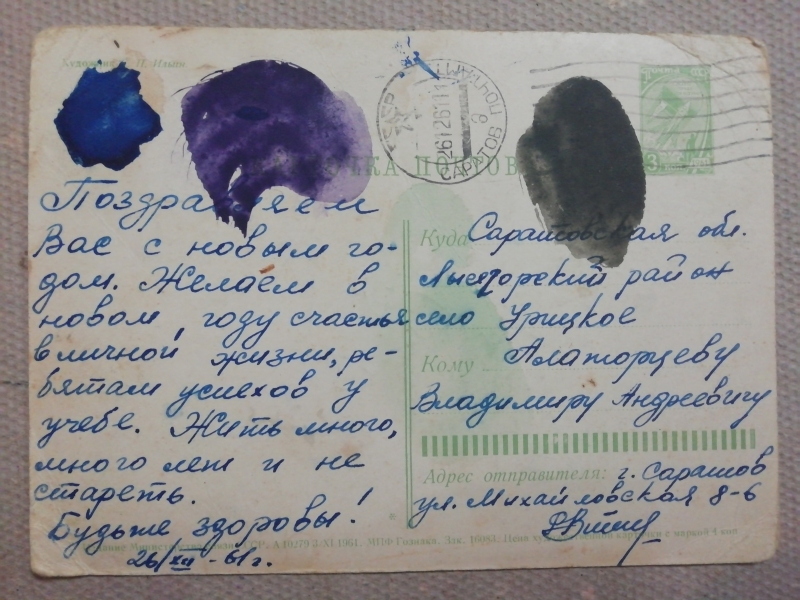 Художник Н. Ильин
САРАТОВ
Поздравляем
Вас с новым го-
дом. Желаем в
новом году счастья
в личной жизни, ре-
бятам успехов у
учебе. Жить много,
много лет и не
стареть.
Будьте здоровы!
26/XII-61г.
Куда Саратовская обл.
Лысогорский район
село Урицкое
Кому Алаторцеву
Владимиру Андреевичу
Адрес отправителя: г. Саратов
ул. Михайловская 8-6
3/XI 1961. МПФ Гознака. Зак. Цена художественной карточки с маркой 4 коп